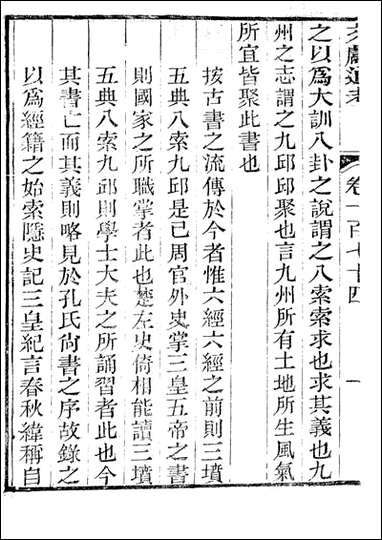 文獻通考　卷一百七十四　一
之以爲大訓八卦之說謂之八索索求也求其義也九
州之志謂之九邱邱聚也言九州所有土地所生風氣
所宜皆聚此書也
按古書之流傳於今者惟六經六經之前則三墳
五典八索九邱是已周官外史掌三皇五帝之書
則國家之所職掌者此也楚左史倚相能讀三墳
五典八索九邱則學士大夫之所誦習者此也今
其書亡而其義則略見於孔氏尙書之序故錄之
以爲經籍之始索隱史記三皇紀言春秋緯稱自